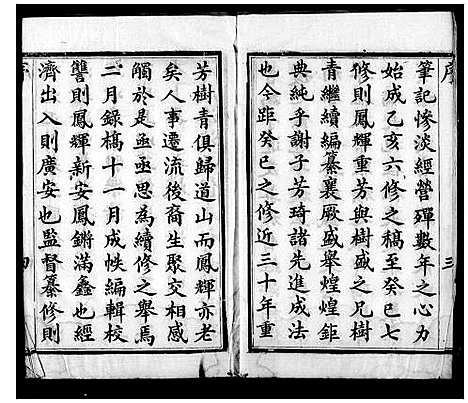 序
三
筆記慘淡經營殫數年之心力
始成乙亥六修之稿至癸巳七
修則鳳輝重芳與樹盛之兄樹
青繼續編纂襄厥盛舉煌煌鉅
典純乎謝子芳琦諸先進成法
也今距癸巳之修近三十年重
芳樹青俱歸道山而鳳輝亦老
矣人事遷流後裔生聚交相感
觸於是亟亟思為續修之舉焉
二月錄槁十一月成帙編輯校
讐則鳳輝新安鳳鏘滿鑫也經
濟出入則廣安也監督纂修則
四